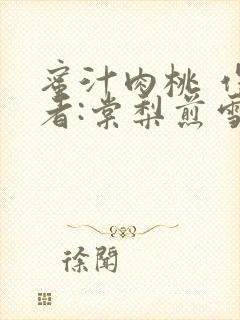 蜜汁肉桃
者:棠梨煎雪
徐聞